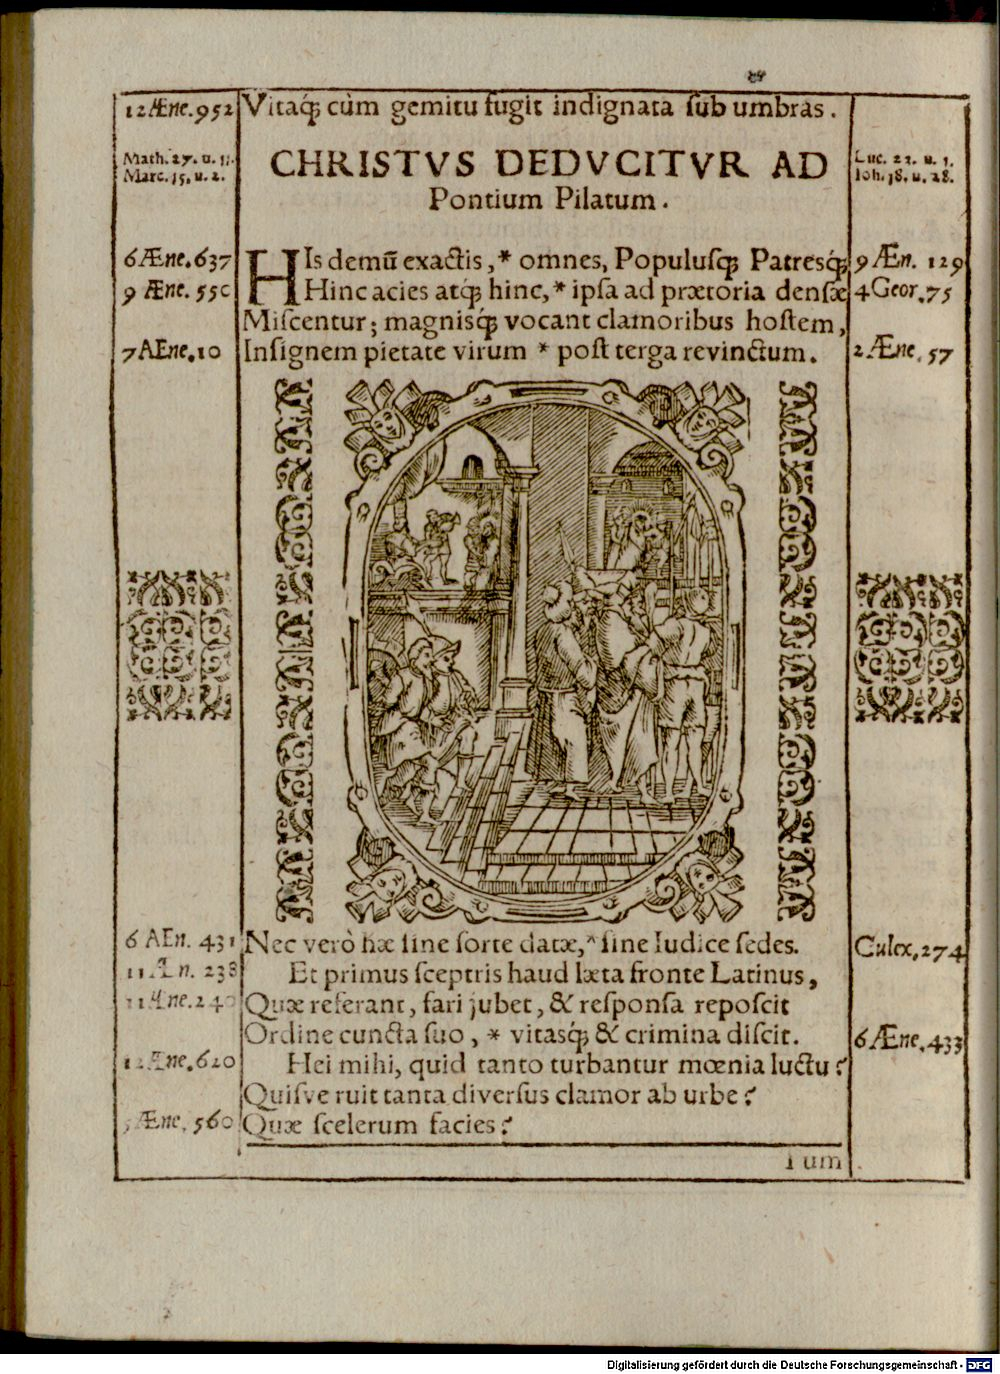 12 Æne. 952 Vitaq́; cùm gemitu fugit indignata ſub umbras.
Math. 27. u. 11. CHRISTVS DEDVCITVR AD Luc. 23. u. 1.
Marc. 15. u. 2. Pontium Pilatum. Ioh. 18. u. 28.
6 Æne. 637 HIs demũ exactis, * omnes, Populuſq; Patresq́; 9 Æn. 129
9 Æne. 55c Hinc acies atq́; hinc, * ipſa ad prætoria denſæ 4 Geor. 75
Miſcentur; magnisq́; vocant clamoribus hoſtem,
7 AEne. 10 Inſignem pietate virum * poſt terga revinctum. 2 Æne. 57
6 AEn. 431 Nec verò hæ ſine ſorte datæ, * ſine Iudice ſedes. Culex, 274
11 Æn. 238 Et primus ſceptris haud læta fronte Latinus,
11 Æne. 240 Quæ referant, fari jubet, & reſponſa repoſcit
Ordine cuncta ſuo, * vitasq́; & crimina diſcit. 6 Æne. 433
12 Æne. 620 Hei mihi, quid tanto turbantur mœnia luctu?
Quiſve ruit tanta diverſus clamor ab urbe?
Æne. 560 Quæ ſcelerum facies?
Tum
Digitalisierung gefördert durch die Deutsche Forschungsgemeinschaft - DFG